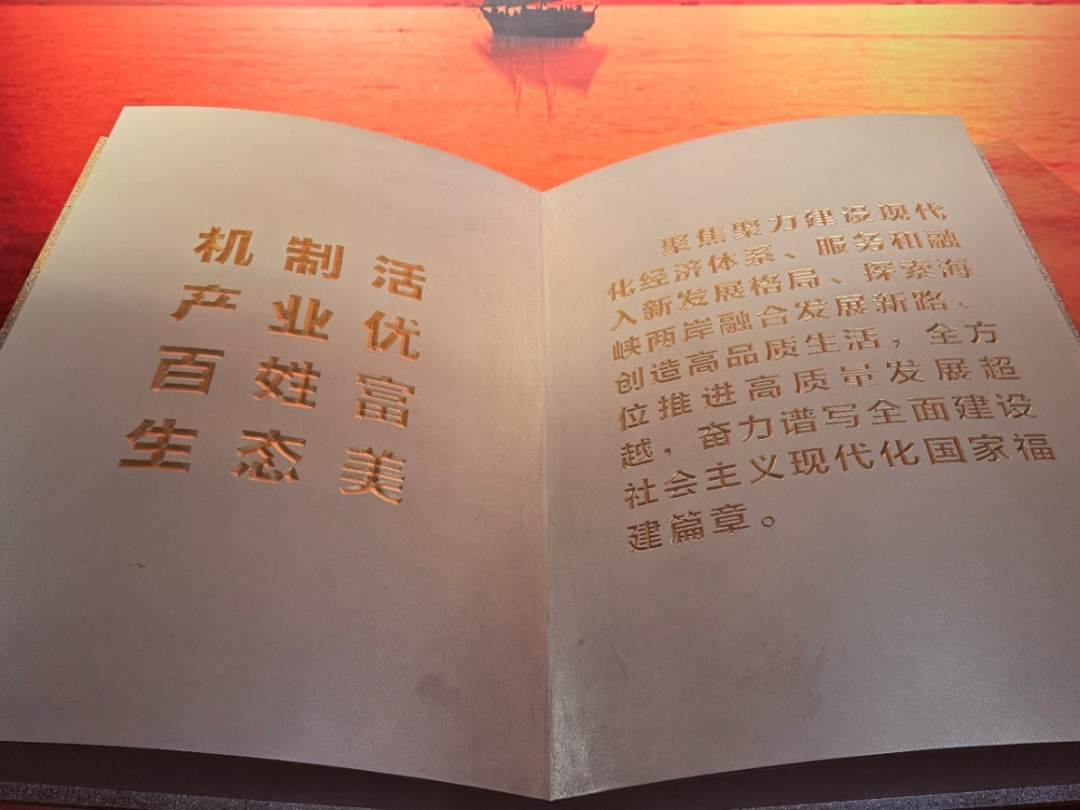 机制活
产业优
百姓富
生态美
聚焦聚力建设现代
化经济体系、服务和融
入新发展格局、探索海
峡两岸融合发展新路、
创造高品质生活，全方
位推进高质量发展超
越，奋力谱写全面建设
社会主义现代化国家福
建篇章。